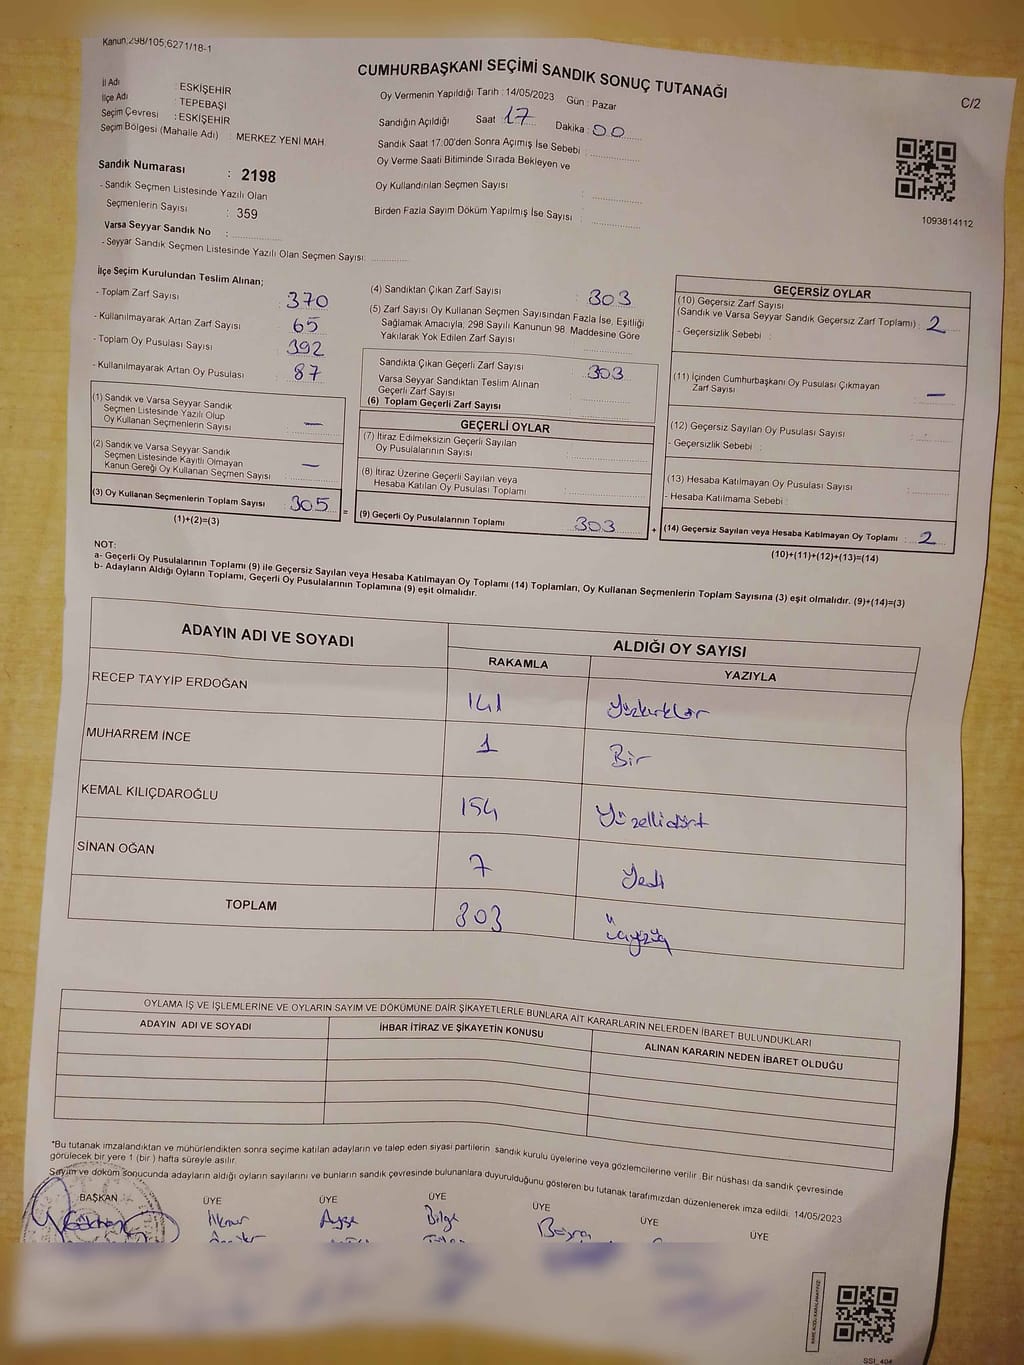 Kanun;298/105;6271/18-1
CUMHURBAŞKANI SEÇİMİ SANDIK SONUÇ TUTANAĞI
C/2
İl Adı : ESKİŞEHİR
İlçe Adı : TEPEBAŞI
Seçim Çevresi : ESKİŞEHİR
Seçim Bölgesi (Mahalle Adı) : MERKEZ YENİ MAH.
Oy Vermenin Yapıldığı Tarih : 14/05/2023 Gün : Pazar
Sandığın Açıldığı Saat 17 Dakika : 00
Sandık Saat 17:00'den Sonra Açmış İse Sebebi :
Oy Verme Saati Bitiminde Sırada Bekleyen ve
Oy Kullandırılan Seçmen Sayısı :
Birden Fazla Sayım Döküm Yapılmış İse Sayısı :
1093814112
Sandık Numarası : 2198
- Sandık Seçmen Listesinde Yazılı Olan
Seçmenlerin Sayısı : 359
Varsa Seyyar Sandık No :
- Seyyar Sandık Seçmen Listesinde Yazılı Olan Seçmen Sayısı:
İlçe Seçim Kurulundan Teslim Alınan;
- Toplam Zarf Sayısı : 370
- Kullanılmayarak Artan Zarf Sayısı : 65
- Toplam Oy Pusulası Sayısı : 392
- Kullanılmayarak Artan Oy Pusulası : 87
(1) Sandık ve Varsa Seyyar Sandık
Seçmen Listesinde Yazılı Olup
Oy Kullanan Seçmenlerin Sayısı : —
(2) Sandık ve Varsa Seyyar Sandık
Seçmen Listesinde Kayıtlı Olmayan
Kanun Gereği Oy Kullanan Seçmen Sayısı : —
(3) Oy Kullanan Seçmenlerin Toplam Sayısı : 305
(1)+(2)=(3)
=
(4) Sandıktan Çıkan Zarf Sayısı : 303
(5) Zarf Sayısı Oy Kullanan Seçmen Sayısından Fazla İse, Eşitliği
Sağlamak Amacıyla, 298 Sayılı Kanunun 98. Maddesine Göre
Yakılarak Yok Edilen Zarf Sayısı :
Sandıkta Çıkan Geçerli Zarf Sayısı : 303
Varsa Seyyar Sandıktan Teslim Alınan
Geçerli Zarf Sayısı :
(6) Toplam Geçerli Zarf Sayısı
GEÇERLİ OYLAR
(7) İtiraz Edilmeksizin Geçerli Sayılan
Oy Pusulalarının Sayısı :
(8) İtiraz Üzerine Geçerli Sayılan veya
Hesaba Katılan Oy Pusulası Toplamı :
(9) Geçerli Oy Pusulalarının Toplamı : 303
+
GEÇERSİZ OYLAR
(10) Geçersiz Zarf Sayısı
(Sandık ve Varsa Seyyar Sandık Geçersiz Zarf Toplamı) : 2
- Geçersizlik Sebebi :
(11) İçinden Cumhurbaşkanı Oy Pusulası Çıkmayan
Zarf Sayısı : —
(12) Geçersiz Sayılan Oy Pusulası Sayısı :
- Geçersizlik Sebebi :
(13) Hesaba Katılmayan Oy Pusulası Sayısı :
- Hesaba Katılmama Sebebi :
(14) Geçersiz Sayılan veya Hesaba Katılmayan Oy Toplamı : 2
(10)+(11)+(12)+(13)=(14)
NOT:
a- Geçerli Oy Pusulalarının Toplamı (9) ile Geçersiz Sayılan veya Hesaba Katılmayan Oy Toplamı (14) Toplamları, Oy Kullanan Seçmenlerin Toplam Sayısına (3) eşit olmalıdır. (9)+(14)=(3)
b- Adayların Aldığı Oyların Toplamı, Geçerli Oy Pusulalarının Toplamına (9) eşit olmalıdır.
ADAYIN ADI VE SOYADI ALDIĞI OY SAYISI
RAKAMLA YAZIYLA
RECEP TAYYİP ERDOĞAN 141
MUHARREM İNCE 1 Bir
KEMAL KILIÇDAROĞLU 154 Yüzellidört
SİNAN OĞAN 7 Yedi
TOPLAM 303 Üçyüzüç
OYLAMA İŞ VE İŞLEMLERİNE VE OYLARIN SAYIM VE DÖKÜMÜNE DAİR ŞİKAYETLERLE BUNLARA AİT KARARLARIN NELERDEN İBARET BULUNDUKLARI
ADAYIN ADI VE SOYADI İHBAR İTİRAZ VE ŞİKAYETİN KONUSU ALINAN KARARIN NEDEN İBARET OLDUĞU
*Bu tutanak imzalandıktan ve mühürlendikten sonra seçime katılan adayların ve talep eden siyasi partilerin sandık kurulu üyelerine veya gözlemcilerine verilir. Bir nüshası da sandık çevresinde
görülecek bir yere 1 (bir) hafta süreyle asılır.
Sayım ve döküm sonucunda adayların aldığı oyların sayılarını ve bunların sandık çevresinde bulunanlara duyurulduğunu gösteren bu tutanak tarafımızdan düzenlenerek imza edildi. 14/05/2023
BAŞKAN ÜYE ÜYE ÜYE ÜYE ÜYE ÜYE
Gökhan İlknur Ayşe Bilge Beyra
SSI_404